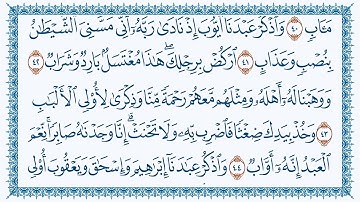 مَـَٔابٖ ٤٠ وَٱذۡكُرۡ عَبۡدَنَآ أَيُّوبَ إِذۡ نَادَىٰ رَبَّهُۥٓ أَنِّي مَسَّنِيَ ٱلشَّيۡطَٰنُ
بِنُصۡبٖ وَعَذَابٍ ٤١ ٱرۡكُضۡ بِرِجۡلِكَۖ هَٰذَا مُغۡتَسَلُۢ بَارِدٞ وَشَرَابٞ ٤٢
وَوَهَبۡنَا لَهُۥٓ أَهۡلَهُۥ وَمِثۡلَهُم مَّعَهُمۡ رَحۡمَةٗ مِّنَّا وَذِكۡرَىٰ لِأُوْلِي ٱلۡأَلۡبَٰبِ
٤٣ وَخُذۡ بِيَدِكَ ضِغۡثٗا فَٱضۡرِب بِّهِۦ وَلَا تَحۡنَثۡۗ إِنَّا وَجَدۡنَٰهُ صَابِرٗاۚ نِّعۡمَ
ٱلۡعَبۡدُ إِنَّهُۥٓ أَوَّابٞ ٤٤ وَٱذۡكُرۡ عِبَٰدَنَآ إِبۡرَٰهِيمَ وَإِسۡحَٰقَ وَيَعۡقُوبَ أُوْلِي